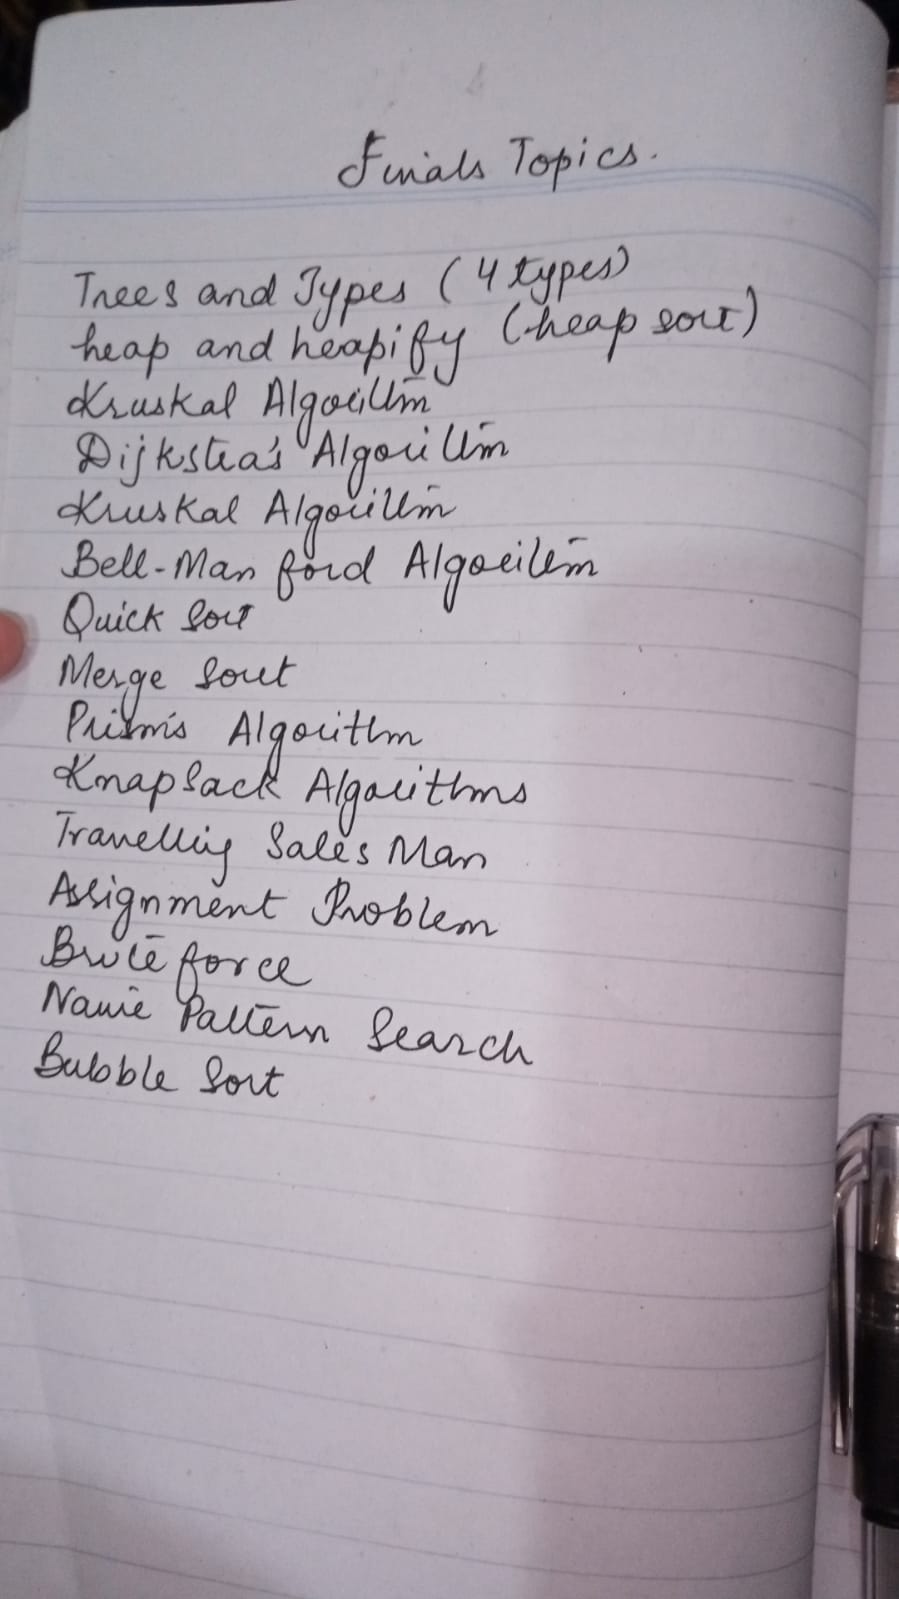 Finals Topics.
Trees and Types (4 types)
heap and heapify (heap sort)
Kruskal Algorithm
Dijkstra's Algorithm
Kruskal Algorithm
Bell-Man ford Algorithm
Quick Sort
Merge Sort
Prism's Algorithm
KnapSack Algorithms
Travelling Sales Man
Assignment Problem
Brute force
Naive Pattern Search
Bubble Sort